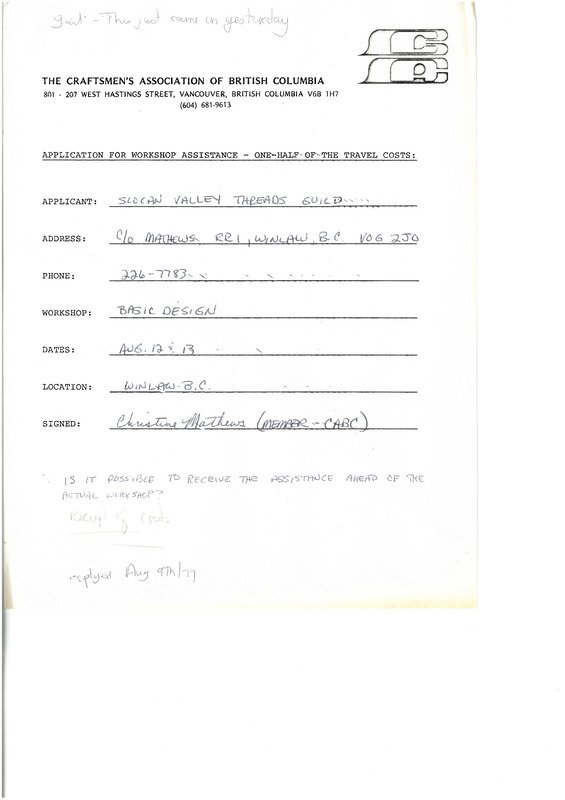 Gail - This just came in yesterday
CABC
THE CRAFTSMEN'S ASSOCIATION OF BRITISH COLUMBIA
801 - 207 WEST HASTINGS STREET, VANCOUVER, BRITISH COLUMBIA V6B 1H7
(604) 681-9613
APPLICATION FOR WORKSHOP ASSISTANCE - ONE-HALF OF THE TRAVEL COSTS:
APPLICANT: SLOCAN VALLEY THREADS GUILD
ADDRESS: C/O MATHEWS RR1, WINLAW, B.C. V0G 2J0
PHONE: 226-7783
WORKSHOP: BASIC DESIGN
DATES: AUG. 12 & 13
LOCATION: WINLAW B.C.
SIGNED: Christine Mathews (MEMBER - CABC)
IS IT POSSIBLE TO RECEIVE THE ASSISTANCE AHEAD OF THE
ACTUAL WORKSHOP?
Receipt of costs
replyed Aug 9th/77